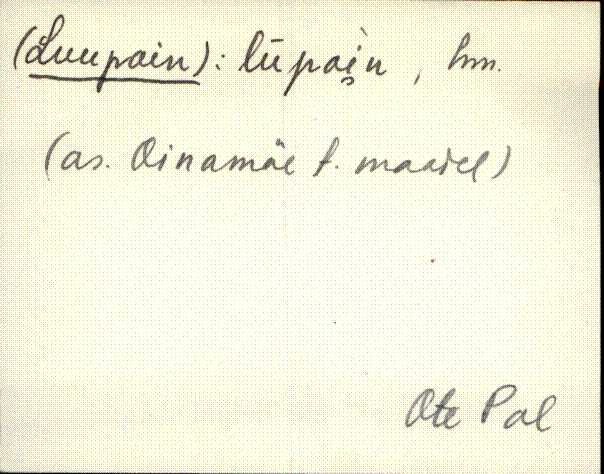 (Luupain): lūpai̮n, hm.
(as. Oinamäe t. maadel)
Ote Pal